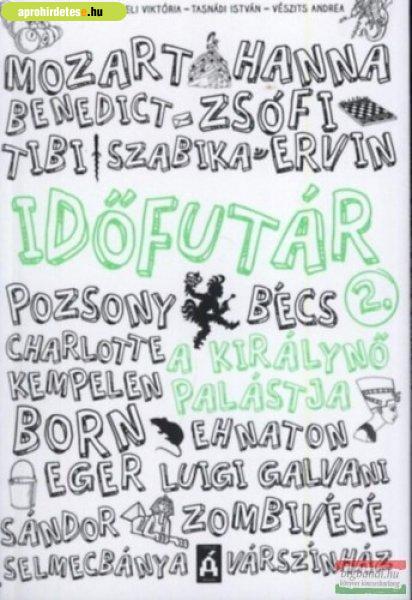 aprohirdetes.hu
ELI VIKTÓRIA - TASNÁDI ISTVÁN - VÉSZITS ANDREA
MOZART HANNA
BENEDICT ZSÓFI
TIBI SZABIKA ERVIN
IDŐFUTÁR
POZSONY BÉCS 2.
CHARLOTTE A KIRÁLYNŐ
KEMPELEN PALÁSTJA
BORN EHNATON
EGER LUIGI GALVANI
SÁNDOR ZOMBIVÉCÉ
SELMECBÁNYA Á VÁRSZÍNHÁZ
bigbandi.hu